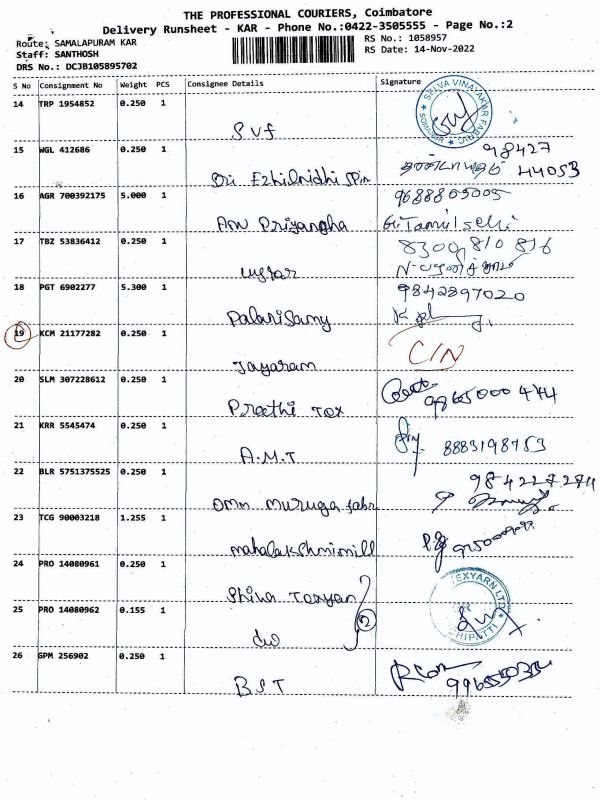 THE PROFESSIONAL COURIERS, Coimbatore
Delivery Runsheet - KAR - Phone No.:0422-3505555 - Page No.:2
Route: SAMALAPURAM KAR
RS No.: 1058957
Staff: SANTHOSH
RS Date: 14-Nov-2022
DRS No.: DCJB105895702
S No Consignment No Weight PCS Consignee Details Signature
14 TRP 1954852 0.250 1
SELVA VINAYAKAR FABRIC
SVF
15 WGL 412686 0.250 1
98427
44053
Sri Ezhilnidhi Spin
16 AGR 700392175 5.000 1
9688805005
Arw Priyangha
G.Tamilselvi
17 TBZ 53836412 0.250 1
8300810816
18 PGT 6902277 5.300 1
9842897020
Palanisamy
19 KCM 21177282 0.250 1
C/N
Jayaram
20 SLM 307228612 0.250 1
Preethi Tex
21 KRR 5545474 0.250 1
8883198753
A.M.T
22 BLR 5751375525 0.250 1
Omm Muruga fabr
23 TCG 90003218 1.255 1
mahalakshmimill
24 PRO 14080961 0.250 1
Shiva Texyan
2
25 PRO 14080962 0.155 1
do
26 GPM 256902 0.250 1
BST